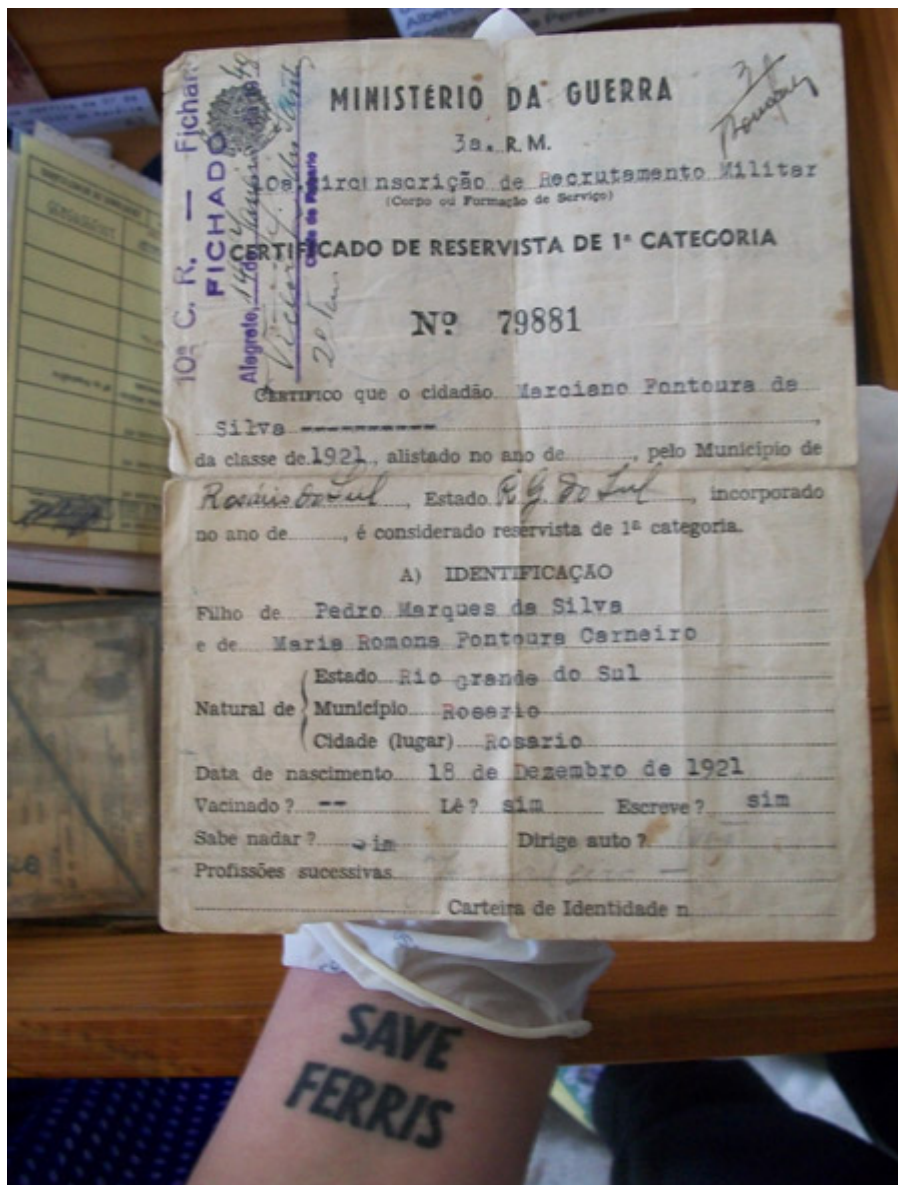 MINISTÉRIO DA GUERRA
3a. R. M.
10a. Circunscrição de Recrutamento Militar
(Corpo ou Formação de Serviço)
CERTIFICADO DE RESERVISTA DE 1ª CATEGORIA
Nº 79881
10ª C. R. — Fichari
FICHADO
Alegrete,
CERTIFICO que o cidadão Marciano Fontoura da
Silva ----------,
da classe de 1921, alistado no ano de ........, pelo Município de
Rosário do Sul, Estado R. G. do Sul, incorporado
no ano de ........, é considerado reservista de 1ª categoria.
A) IDENTIFICAÇÃO
Filho de Pedro Marques da Silva
e de Maria Romona Fontoura Carneiro
Natural de
Estado Rio grande do Sul
Município Rosario
Cidade (lugar) Rosario
Data de nascimento 18 de Dezembro de 1921
Vacinado? -- Lê? sim Escreve? sim
Sabe nadar? sim Dirige auto?
Profissões sucessivas
Carteira de Identidade n
SAVE
FERRIS